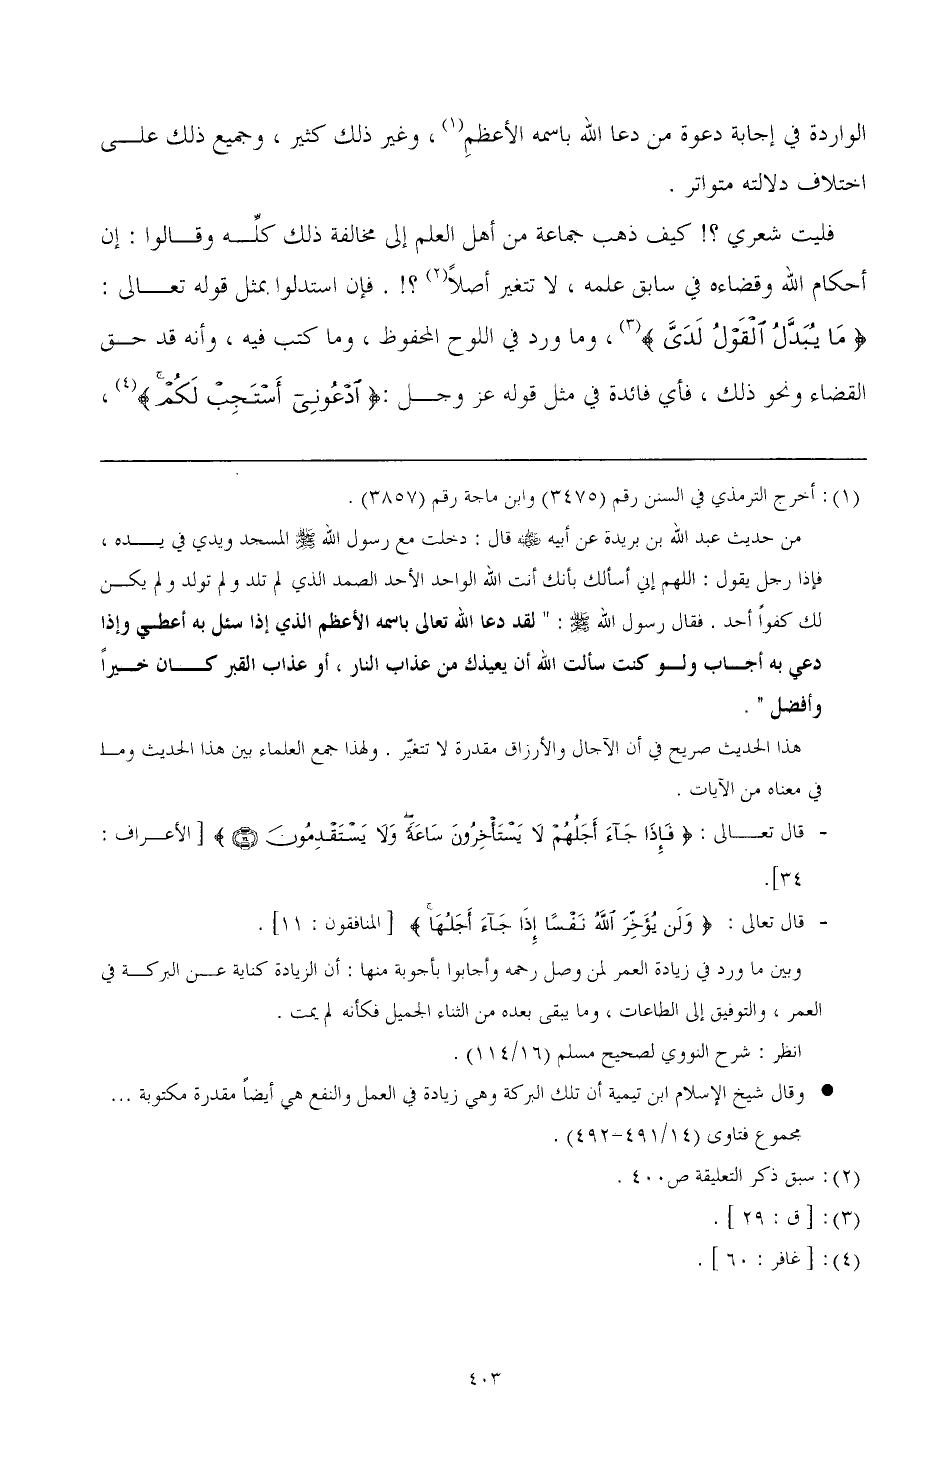 الواردة في إجابة دعوة من دعا الله باسمه الأعظمِ(١) ، وغير ذلك كثير ، وجميع ذلك علـــى
اختلاف دلالته متواتر .
فليت شعري ؟! كيف ذهب جماعة من أهل العلم إلى مخالفة ذلك كلِّـــه وقـــالوا : إن
أحكام الله وقضاءه في سابق علمه ، لا تتغير أصلاً(٢) ؟! . فإن استدلوا بمثل قوله تعـــالى :
﴿ مَا يُبَدَّلُ ٱلْقَوْلُ لَدَىَّ ﴾(٣) ، وما ورد في اللوح المحفوظ ، وما كتب فيه ، وأنه قد حـــق
القضاء ونحو ذلك ، فأي فائدة في مثل قوله عز وجـــل :﴿ ٱدْعُونِىٓ أَسْتَجِبْ لَكُمْ ۚ ﴾(٤) ،
(١): أخرج الترمذي في السنن رقم (٣٤٧٥) وابن ماجة رقم (٣٨٥٧) .
من حديث عبد الله بن بريدة عن أبيه ﷺ قال : دخلت مع رسول الله ﷺ المسجد ويدي في يـــده ،
فإذا رجل يقول : اللهم إني أسألك بأنك أنت الله الواحد الأحد الصمد الذي لم تلد ولم تولد ولم يكـــن
لك كفواً أحد . فقال رسول الله ﷺ : " لقد دعا الله تعالى باسمه الأعظم الذي إذا سئل به أعطـي وإذا
دعي به أجـــاب ولـــو كنت سألت الله أن يعيذك من عذاب النار ، أو عذاب القبر كـــان خـــيراً
وأفضل " .
هذا الحديث صريح في أن الآجال والأرزاق مقدرة لا تتغيّر . ولهذا جمع العلماء بين هذا الحديث ومـــا
في معناه من الآيات .
- قال تعـــالى : ﴿ فَإِذَا جَآءَ أَجَلُهُمْ لَا يَسْتَأْخِرُونَ سَاعَةً ۖ وَلَا يَسْتَقْدِمُونَ ﴾ [ الأعـــراف :
٣٤].
- قال تعالى : ﴿ وَلَن يُؤَخِّرَ ٱللَّهُ نَفْسًا إِذَا جَآءَ أَجَلُهَا ۚ ﴾ [ المنافقون : ١١] .
وبين ما ورد في زيادة العمر لمن وصل رحمه وأجابوا بأجوبة منها : أن الزيادة كناية عـــن البركـــة في
العمر ، والتوفيق إلى الطاعات ، وما يبقى بعده من الثناء الجميل فكأنه لم يمت .
انظر : شرح النووي لصحيح مسلم (١١٤/١٦) .
● وقال شيخ الإسلام ابن تيمية أن تلك البركة وهي زيادة في العمل والنفع هي أيضاً مقدرة مكتوبة ...
مجموع فتاوى (٤٩١/١٤-٤٩٢) .
(٢): سبق ذكر التعليقة ص٤٠٠ .
(٣): [ ق : ٢٩ ] .
(٤): [ غافر : ٦٠ ] .
٤٠٣